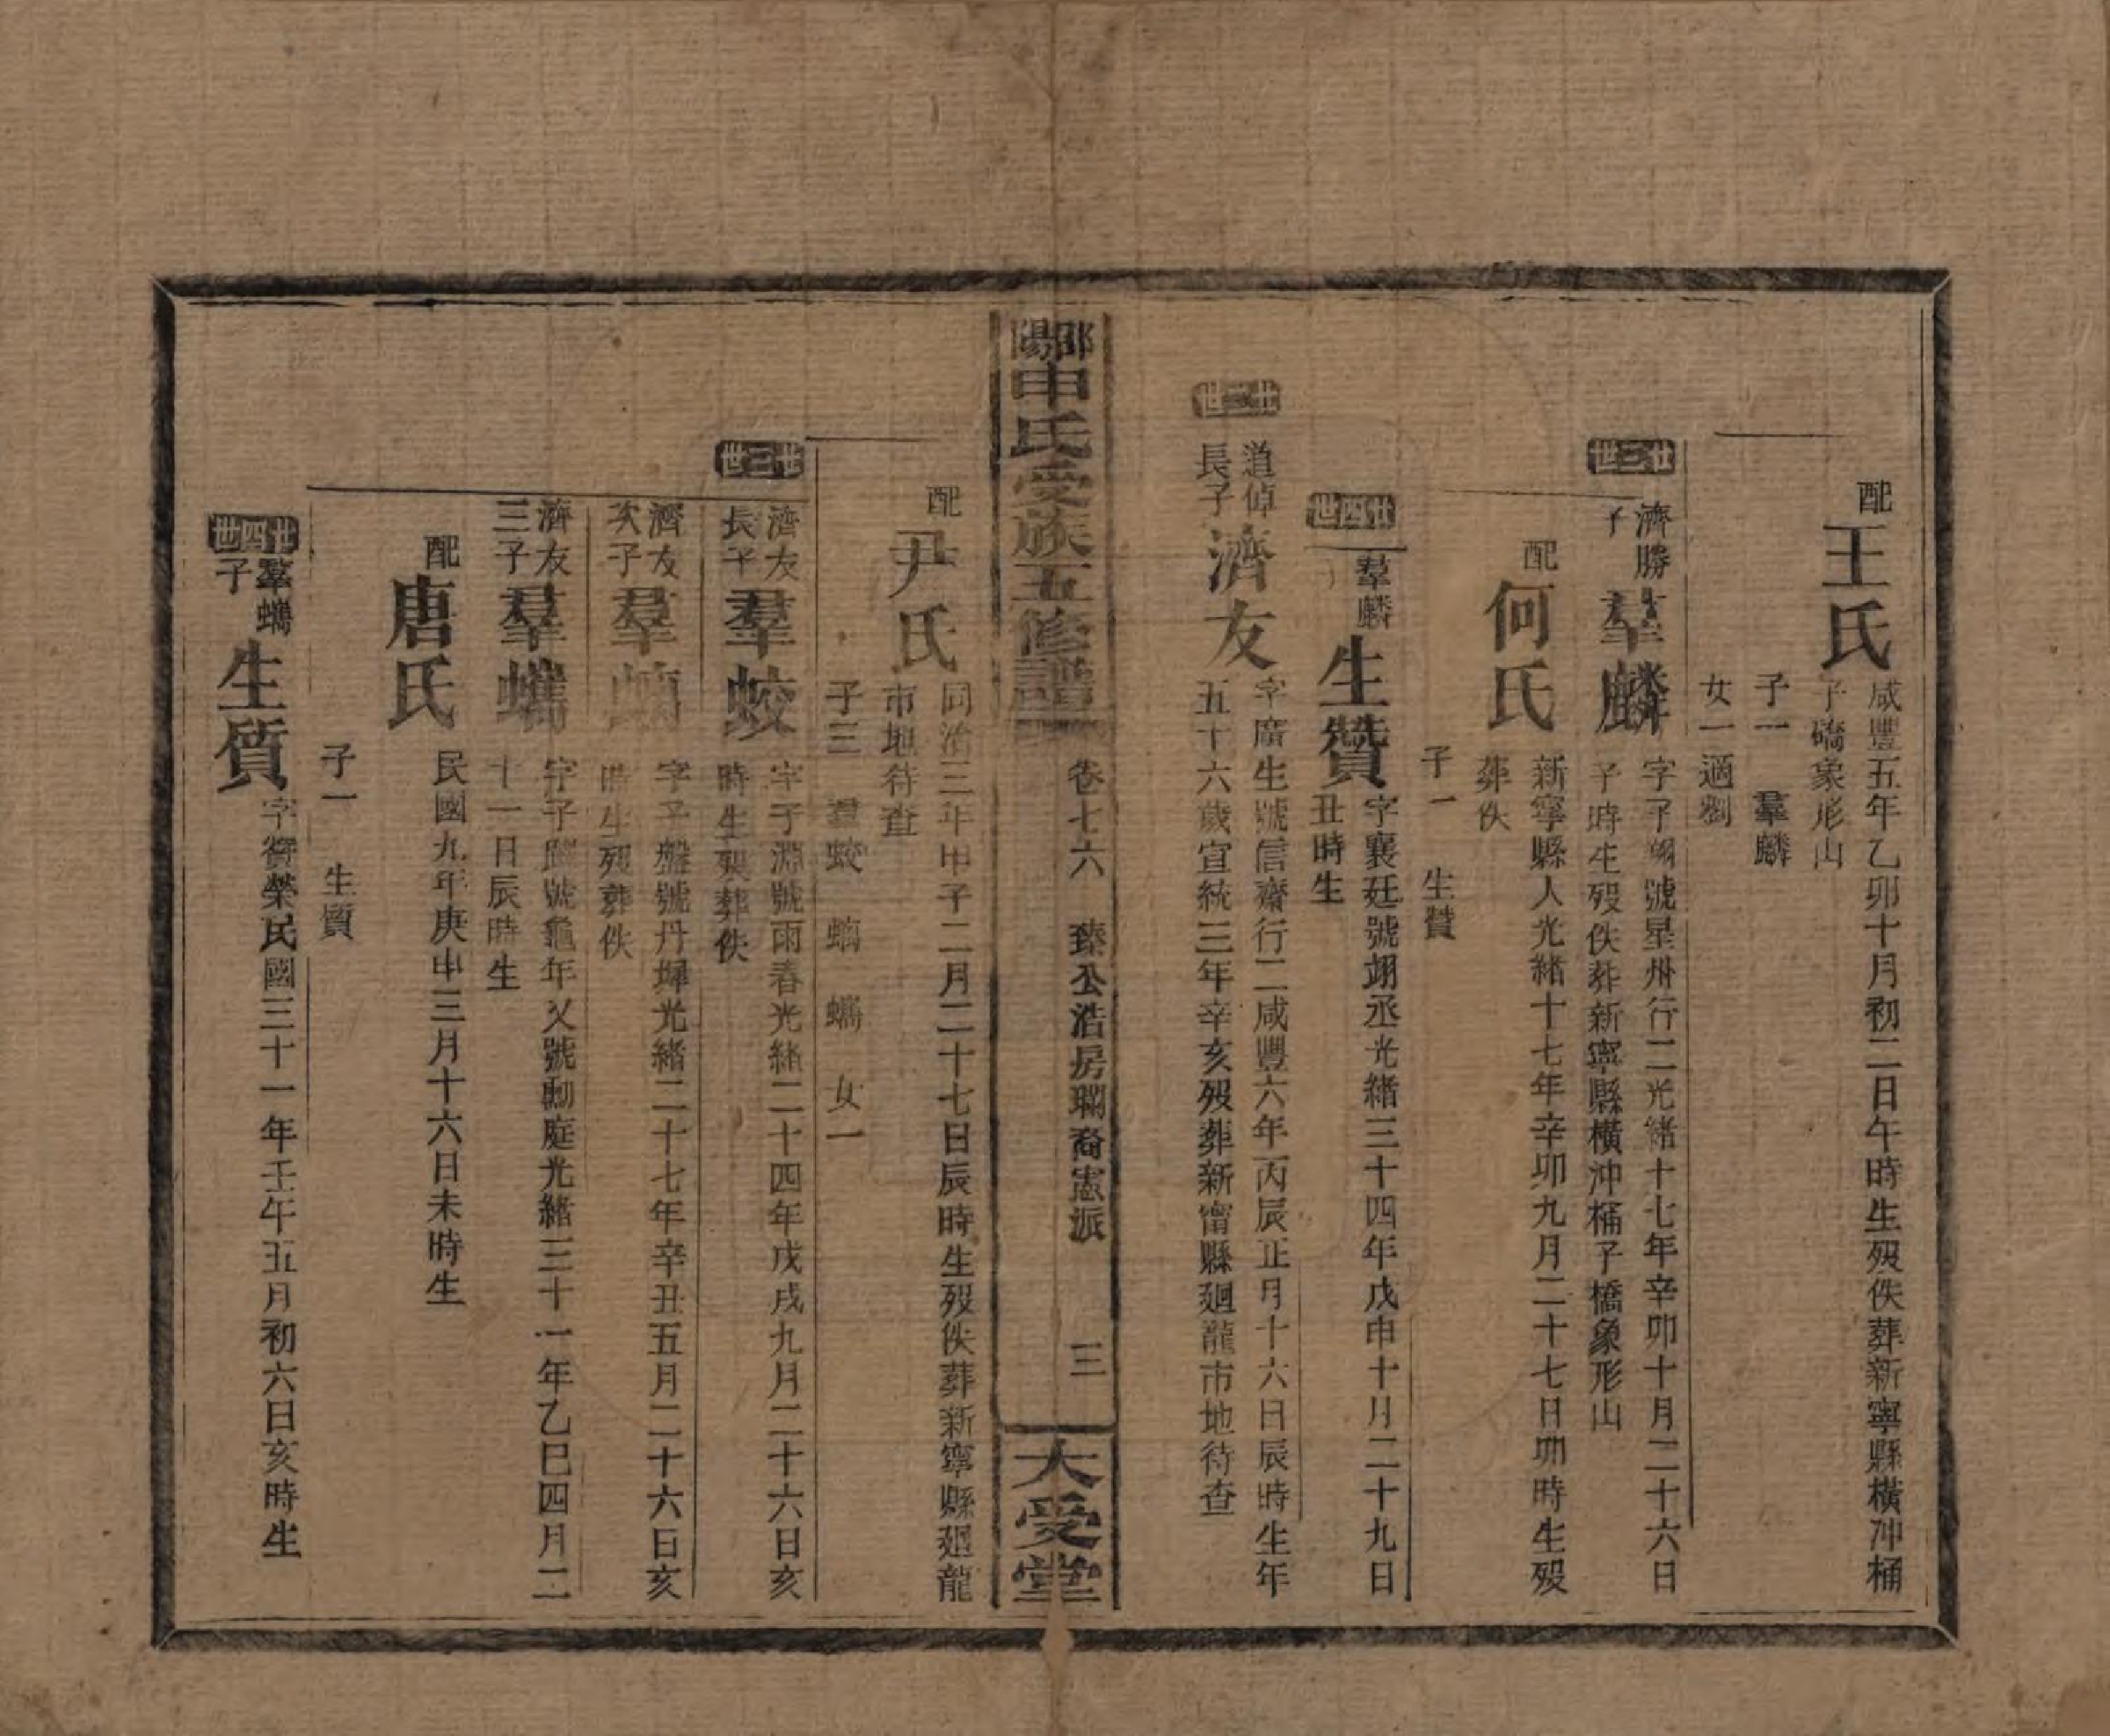 配王氏
咸豐五年乙卯十月初二日午時生歿佚葬新寧縣橫冲桶
子礄象形山
子一 羣麟
女一適劉
廿三世
濟勝
子
羣麟
字子 號星州行二光緒十七年辛卯十月二十六日
子時生歿佚葬新寧縣橫冲桶子橋象形山
配何氏
新寧縣人光緒十七年辛卯九月二十七日卯時生歿
葬佚
子一 生贊
廿四世
羣麟
子
生贊
字襄廷號翊丞光緒三十四年戊申十月二十九日
丑時生
廿二世
道倬
長子
濟友
字廣生號信齋行二咸豐六年丙辰正月十六日辰時生年
五十六歲宣統三年辛亥歿葬新甯縣廻龍市地待查
邵陽申氏受族五修譜
卷七六 臻公浩房瓓裔憲派 三
大受堂
配尹氏
同治三年甲子二月二十七日辰時生歿佚葬新寧縣廻龍
市地待查
子三 羣蛟 蠣 女一
廿三世
濟友
長子
羣蛟
字子淵號雨春光緒二十四年戊戌九月二十六日亥
時生歿葬佚
濟友
次子
羣
字子盤號丹墀光緒二十七年辛丑五月二十六日亥
時生歿葬佚
濟友
三子
羣蠣
字子 號龜年又號勳庭光緒三十一年乙巳四月二
十一日辰時生
配唐氏
民國九年庚申三月十六日未時生
子一 生質
廿四世
羣蠣
子
生質
字 榮民國三十一年壬午五月初六日亥時生